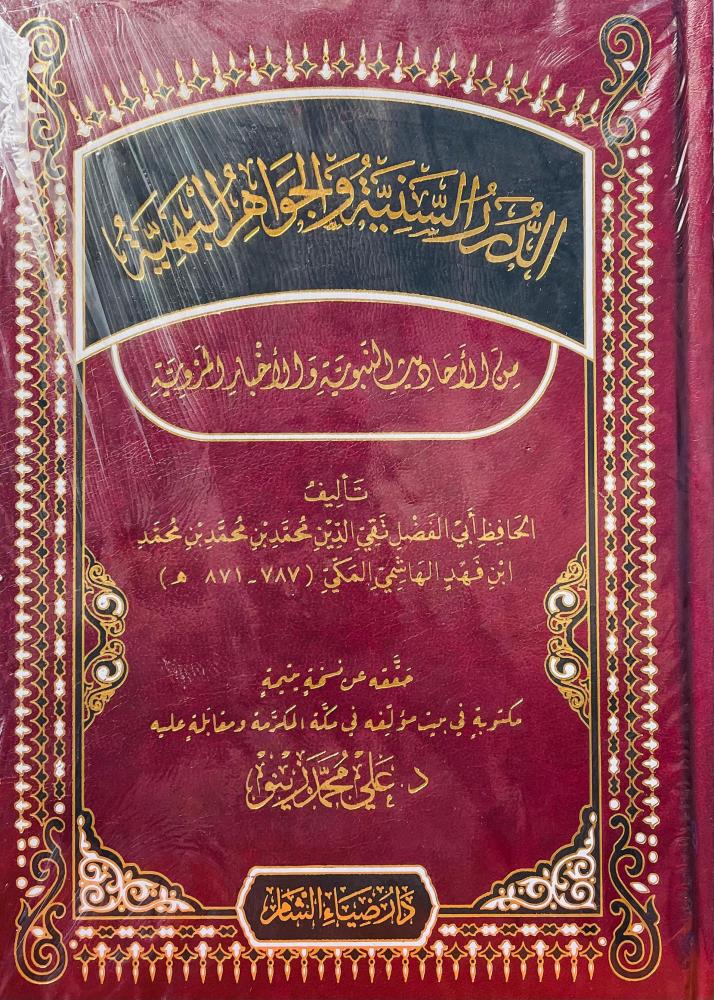 الدُّرَرُ السَّنِيَّةُ وَالجَوَاهِرُ البَهِيَّةُ
مِنَ الأَحَادِيثِ النَّبَوِيَّةِ وَالأَخْبَارِ المَرْوِيَّةِ
تَأْلِيفُ
الحَافِظِ أَبِي الفَضْلِ تَقِيِّ الدِّيْنِ مُحَمَّدِ بْنِ مُحَمَّدِ بْنِ مُحَمَّدِ
ابْنِ فَهْدٍ الهَاشِمِيِّ المَكِّيِّ (٧٨٧ - ٨٧١ هـ)
حَقَّقَهُ عن نسخةٍ يتيمةٍ
مكتوبةٍ في بيت مؤلِّفه في مكَّة المكرَّمة ومقابلةٍ عليه
د. عَلِي مُحَمَّد زَيْنُو
دَارُ ضِيَاءِ الشَّامِ